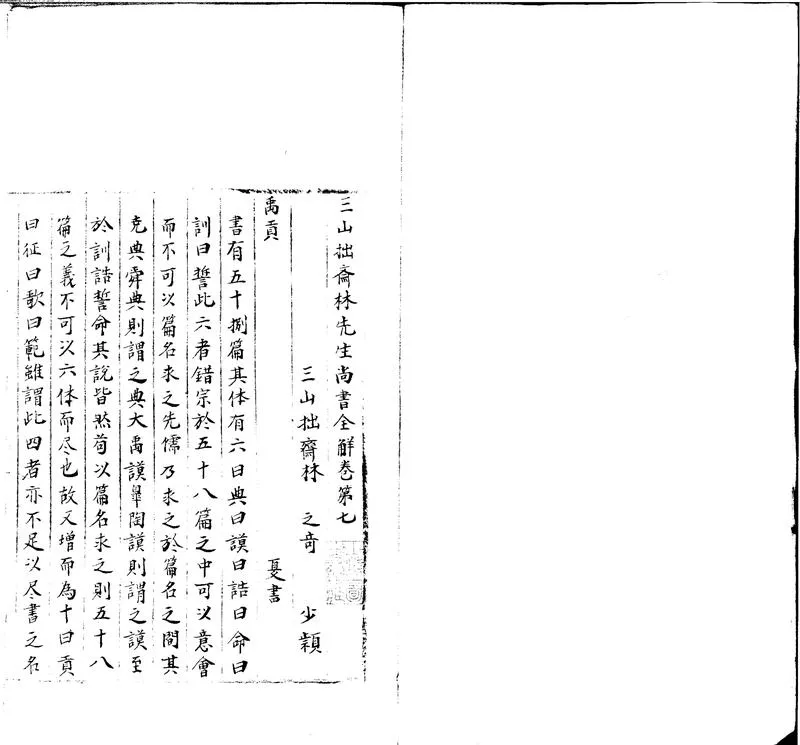 三山拙齋林先生尚書全解卷第七
三山拙齋林　之奇　少穎
禹貢　夏書
書有五十捌篇其体有六曰典曰謨曰誥曰命曰
訓曰誓此六者錯宗於五十八篇之中可以意會
而不可以篇名求之先儒乃求之於篇名之間其
堯典舜典則謂之典大禹謨臯陶謨則謂之謨至
於訓誥誓命其說皆然苟以篇名求之則五十八
篇之義不可以六体而尽也故又增而為十曰貢
曰征曰歌曰範雖謂此四者亦不足以尽書之名